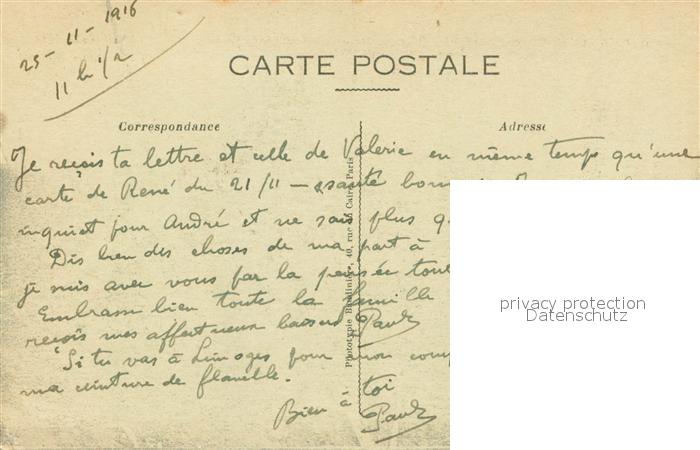 25-11-1916
11 h 1/2
CARTE POSTALE
Correspondance
Adresse
Je reçois ta lettre et celle de Valerie en même temps qu'une
carte de René du 21/11 - santé bonne
inquiet pour André et ne sais plus
Dis bien des choses de ma part à
je suis avec vous par la pensée
Embrasse bien toute la famille
reçois mes affectueux baisers Paul
Si tu vas à Limoges pour mon
ma ceinture de flanelle.
Bien à toi
Paul
Phototypie Baudinière, 40, rue du Caire, Paris
privacy protection
Datenschutz